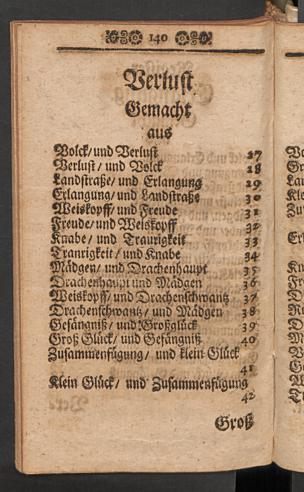 140
Verlust
Gemacht
aus
Volck/ und Verlust 27
Verlust/ und Volck 28
Landstraße/ und Erlangung 29
Erlangung/ und Landstraße 30
Weiskopff/ und Freude 31
Freude/ und Weiskopff 32
Knabe/ und Traurigkeit 33
Tranrigkeit/ und Knabe 34
Mädgen/ und Drachenhaupt 35
Drachenhaupt und Mädgen 36
Weiskopff/ und Drachenschwantz 37
Drachenschwantz/ und Mädgen 38
Gefängniß/ und Großglück 39
Groß Glück/ und Gefängniß 40
Zusammenfügung/ und klein Glück
41
Klein Glück/ und Zusammenfügung
42
Groß